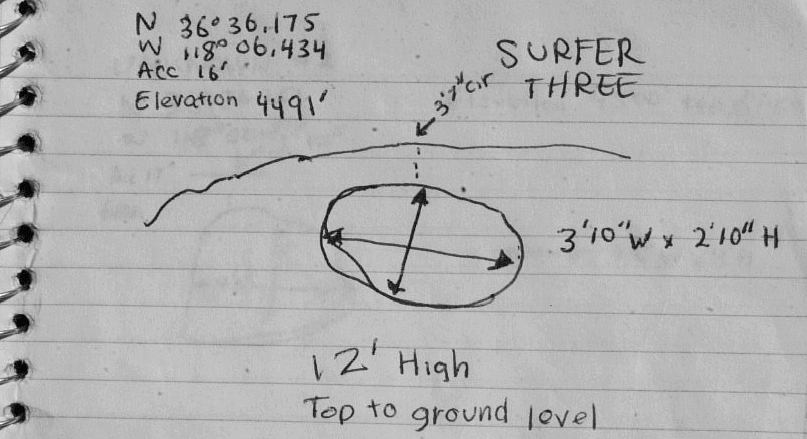 N 36° 36.175
W 118° 06.434
Acc 16'
Elevation 4491'
SURFER
THREE
3'7" cir
3'10"W x 2'10"H
12' High
Top to ground level